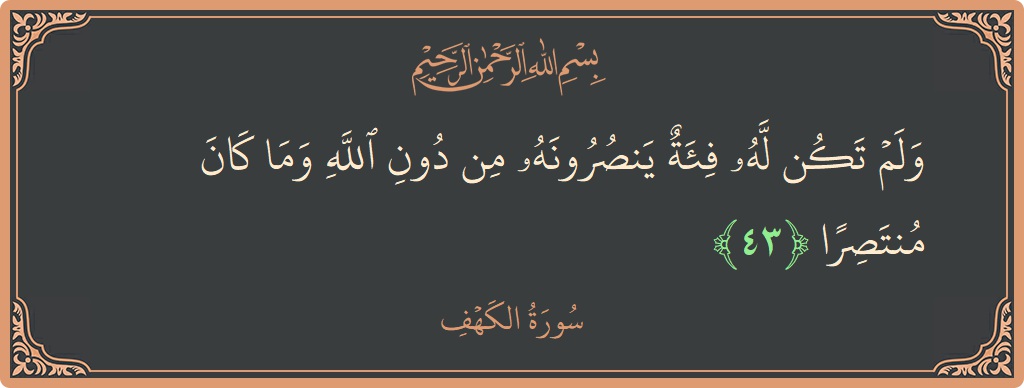 بِسْمِ اللهِ الرَّحْمٰنِ الرَّحِيْمِ
وَلَمْ تَكُن لَّهُۥ فِئَةٌ يَنصُرُونَهُۥ مِن دُونِ ٱللَّهِ وَمَا كَانَ
مُنتَصِرًا ﴿٤٣﴾
سُورَةُ الكَهْفِ